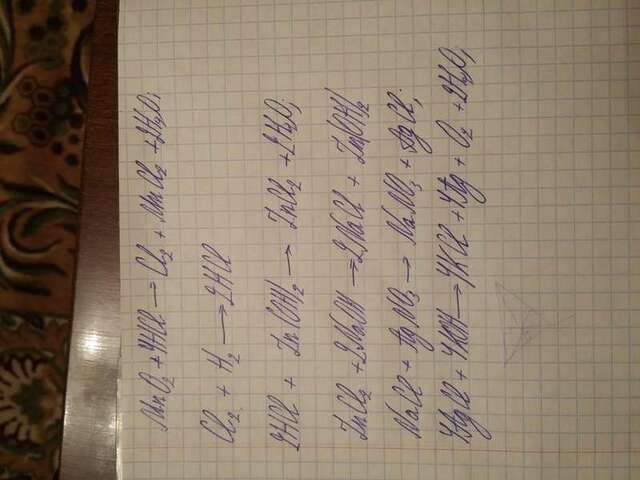 MnO₂ + 4HCl → Cl₂ + MnCl₂ + 2H₂O;
Cl₂ + H₂ → 2HCl
2HCl + Zn(OH)₂ → ZnCl₂ + 2H₂O;
ZnCl₂ + 2NaOH → 2NaCl + Zn(OH)₂
NaCl + AgNO₃ → NaNO₃ + AgCl;
4AgCl + 4KOH → 4KCl + 4Ag + O₂ + 2H₂O;